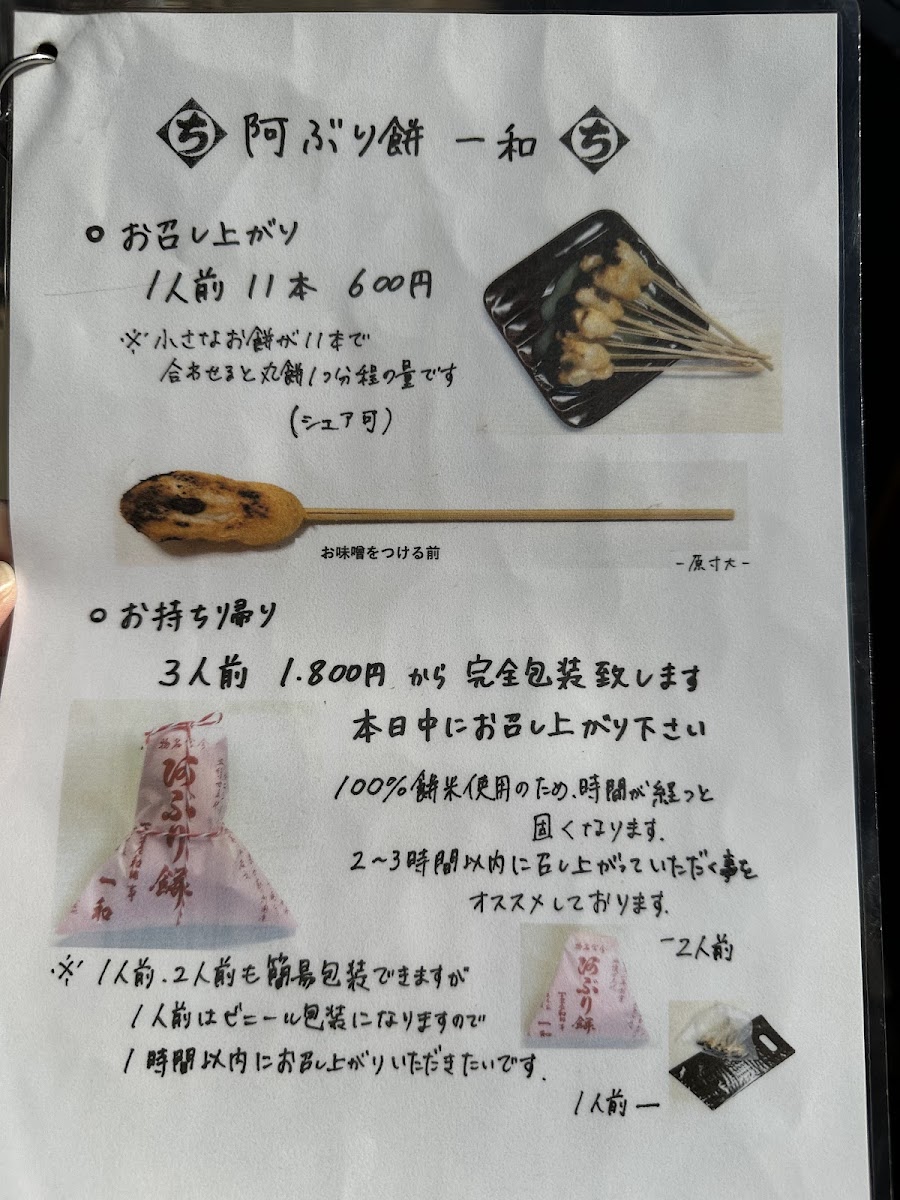 ち 阿ぶり餅 一和 ち
○ お召し上がり
1人前 11本 600円
※小さなお餅が11本で
合わせると丸餅1つ分程の量です
(シェア可)
お味噌をつける前
-原寸大-
○ お持ち帰り
3人前 1.800円 から 完全包装致します
本日中にお召し上がり下さい
100%餅米使用のため、時間が経つと
固くなります.
2〜3時間以内に召し上がっていただく事を
オススメしております.
阿ぶり餅
一和
※ 1人前.2人前も簡易包装できますが
1人前はビニール包装になりますので
1時間以内にお召し上がりいただきたいです.
-2人前
阿ぶり餅
一和
1人前-